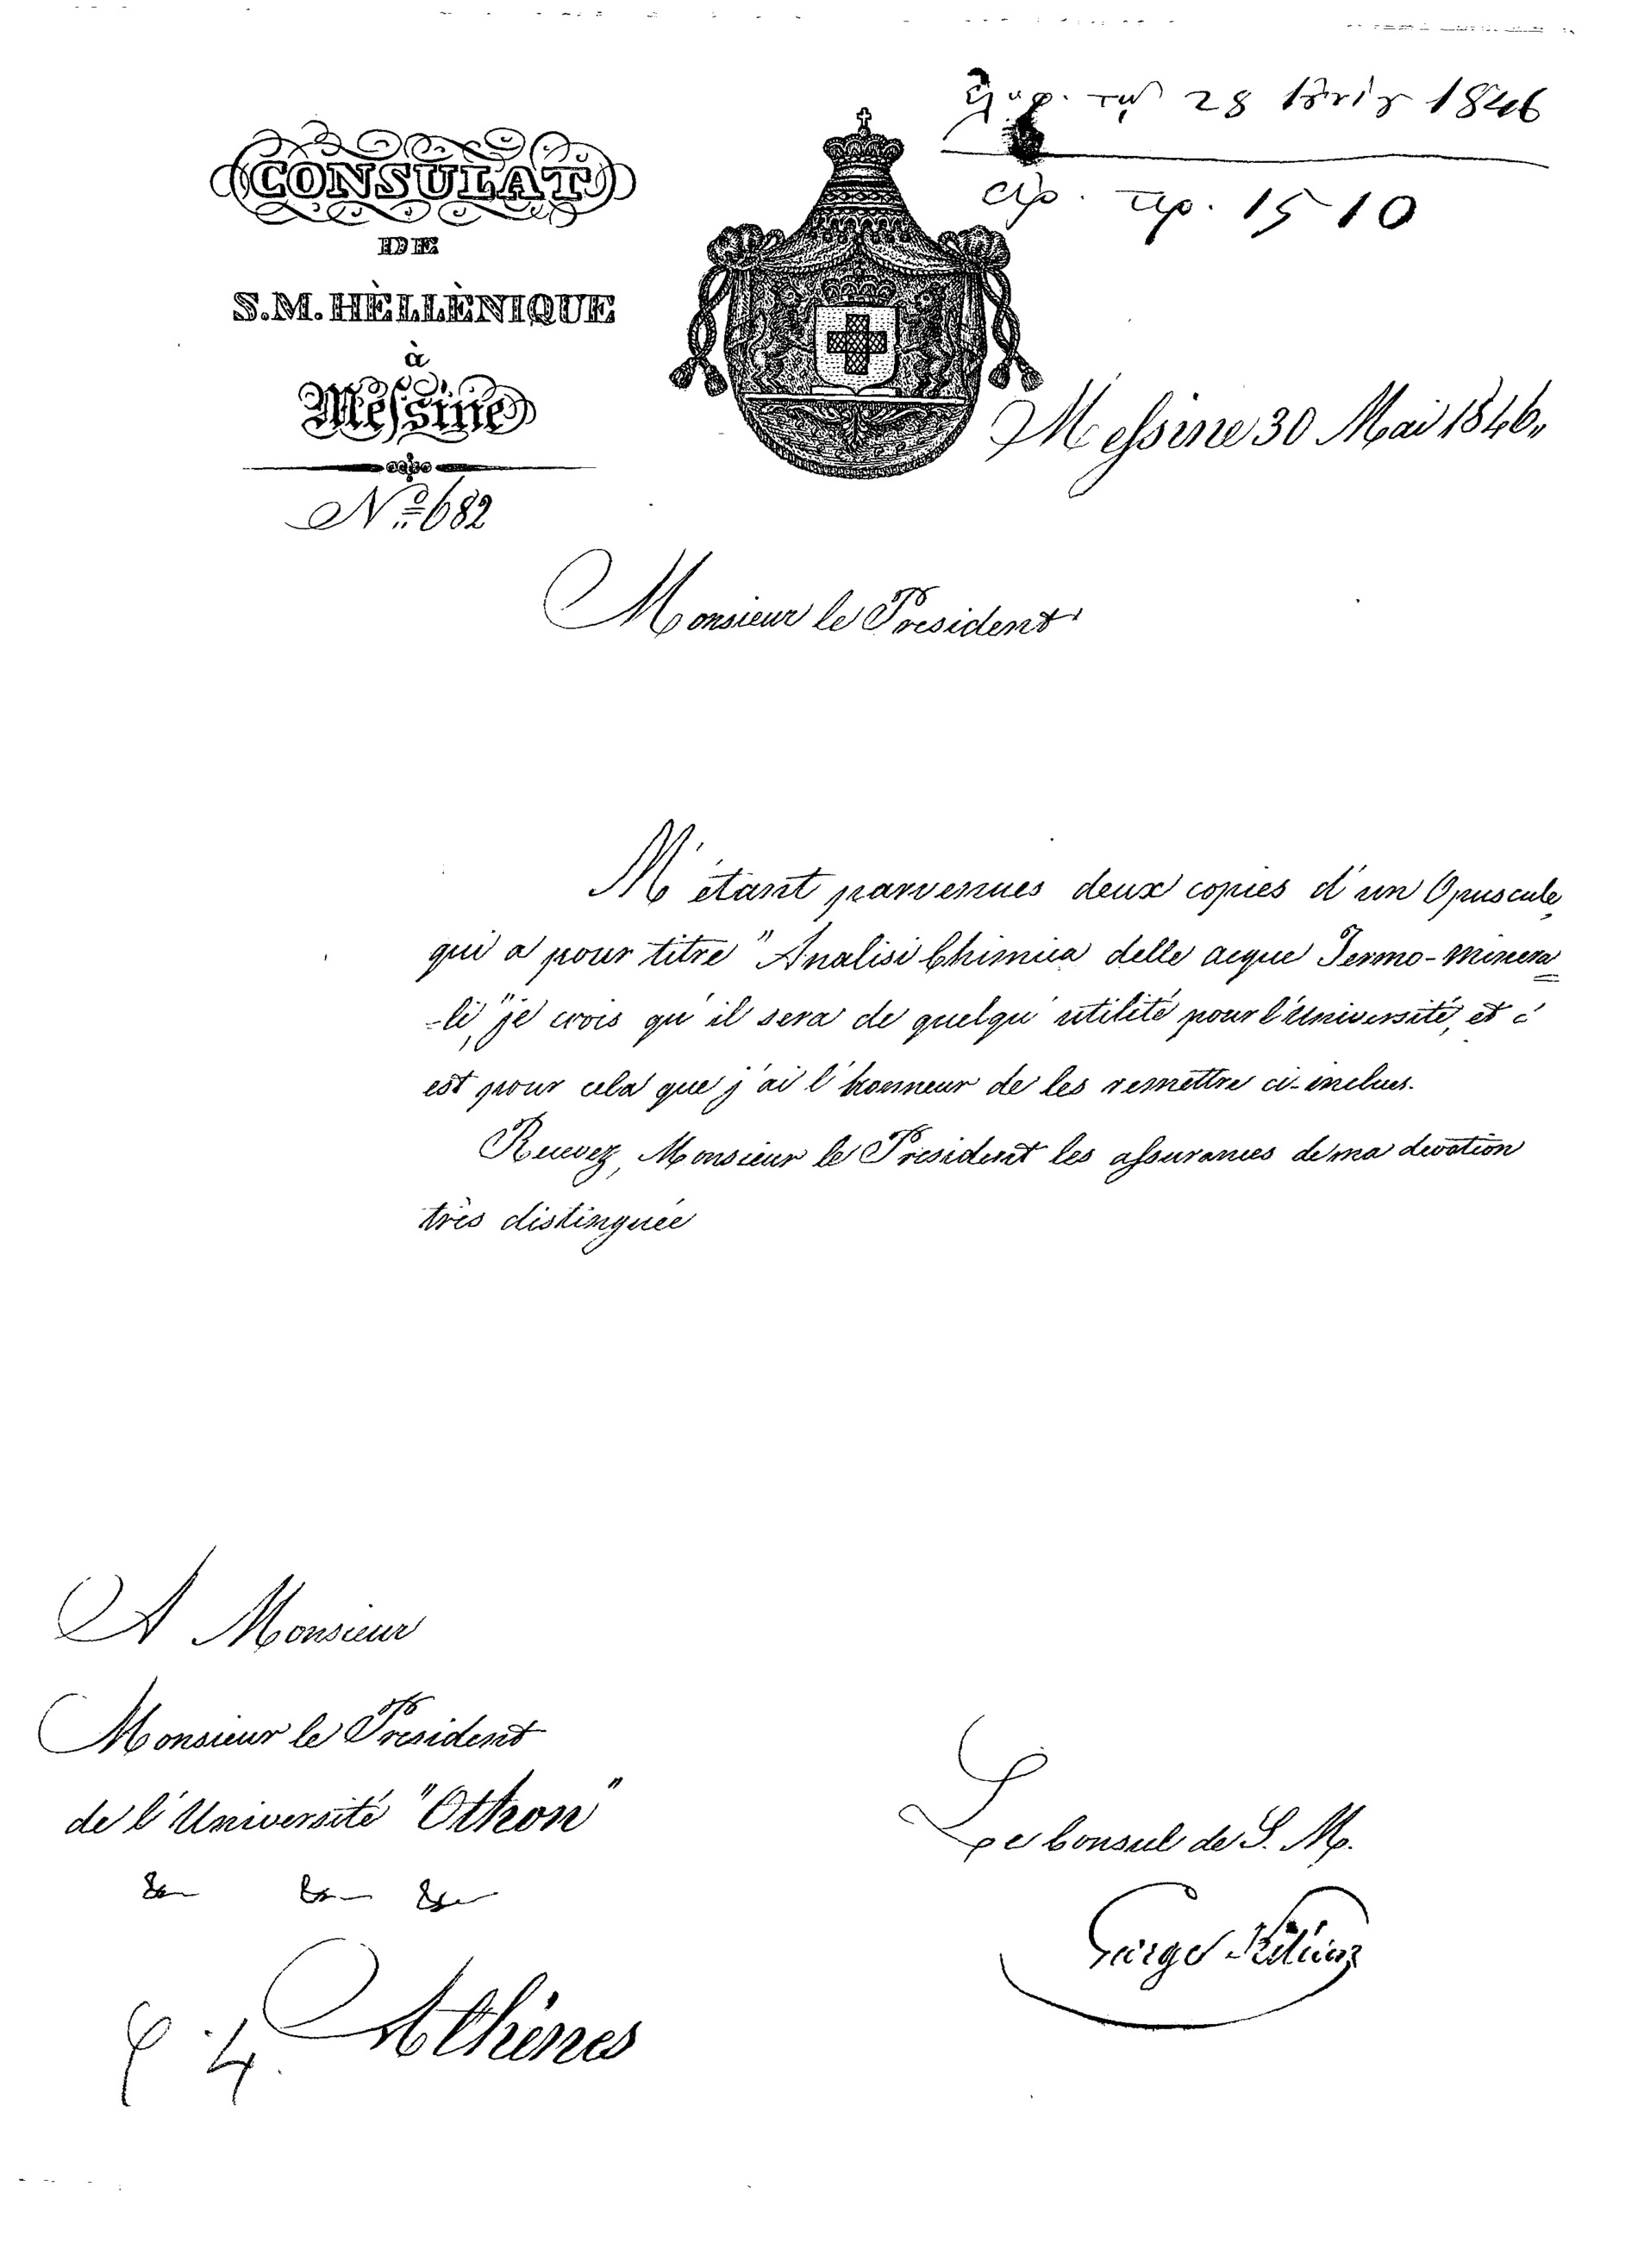 CONSULAT
DE
S.M. HÈLLÈNIQUE
à
Messine
Nº 682
28 1846
ἀρ. πρ. 1510
Messine 30 Mai 1846,,
Monsieur le President
M'étant parvenues deux copies d'un Opuscule,
qui a pour titre "Analisi Chimica delle acque Termo-minera
=li," je crois qu'il sera de quelqu'utilité pour l'Université, et c'
est pour cela que j'ai l'honneur de les remettre ci-inclues.
Recevez, Monsieur le President les assurances de ma devotion
très distinguée
A Monsieur
Monsieur le President
de l'Université "Othon"
Athènes
Le Consul de S. M.